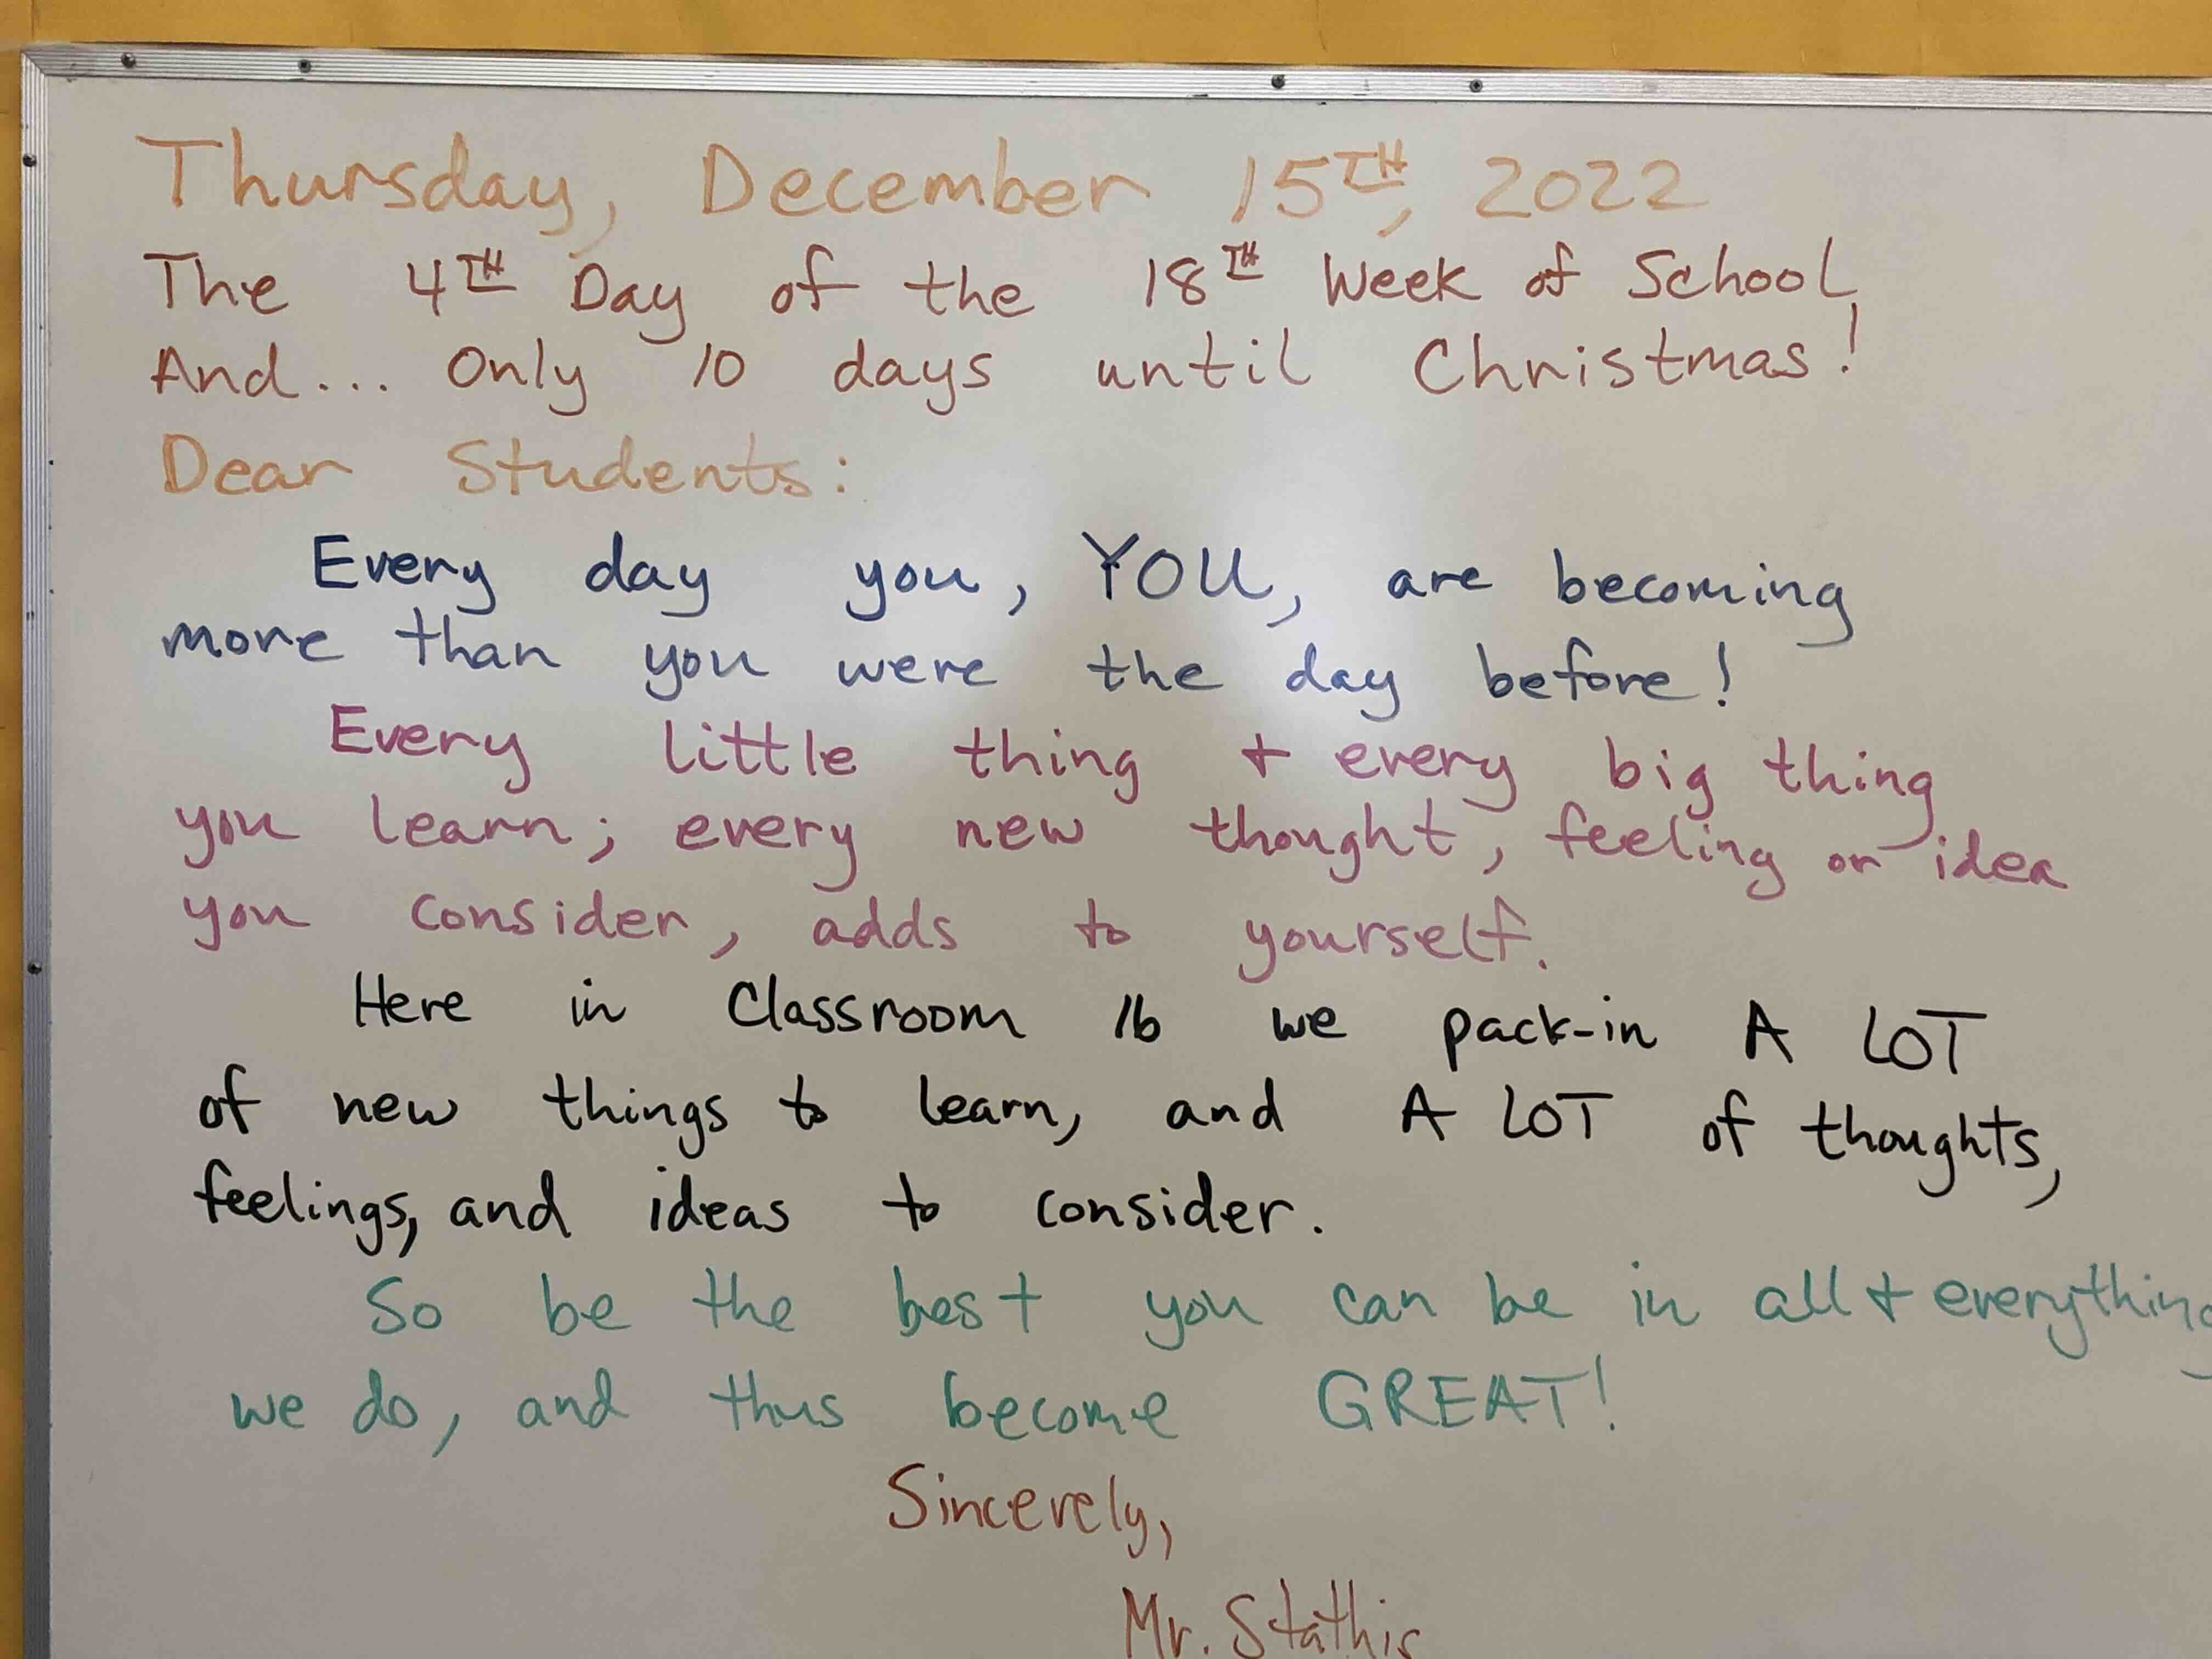 Thursday, December 15TH, 2022
The 4TH Day of the 18TH Week of School
And... Only 10 days until Christmas!
Dear Students:
Every day you, YOU, are becoming
more than you were the day before!
Every little thing + every big thing
you learn; every new thought, feeling or idea
you consider, adds to yourself.
Here in Classroom 16 we pack-in A LOT
of new things to learn, and A LOT of thoughts,
feelings, and ideas to consider.
So be the best you can be in all + everything
we do, and thus become GREAT!
Sincerely,
Mr. Stathis